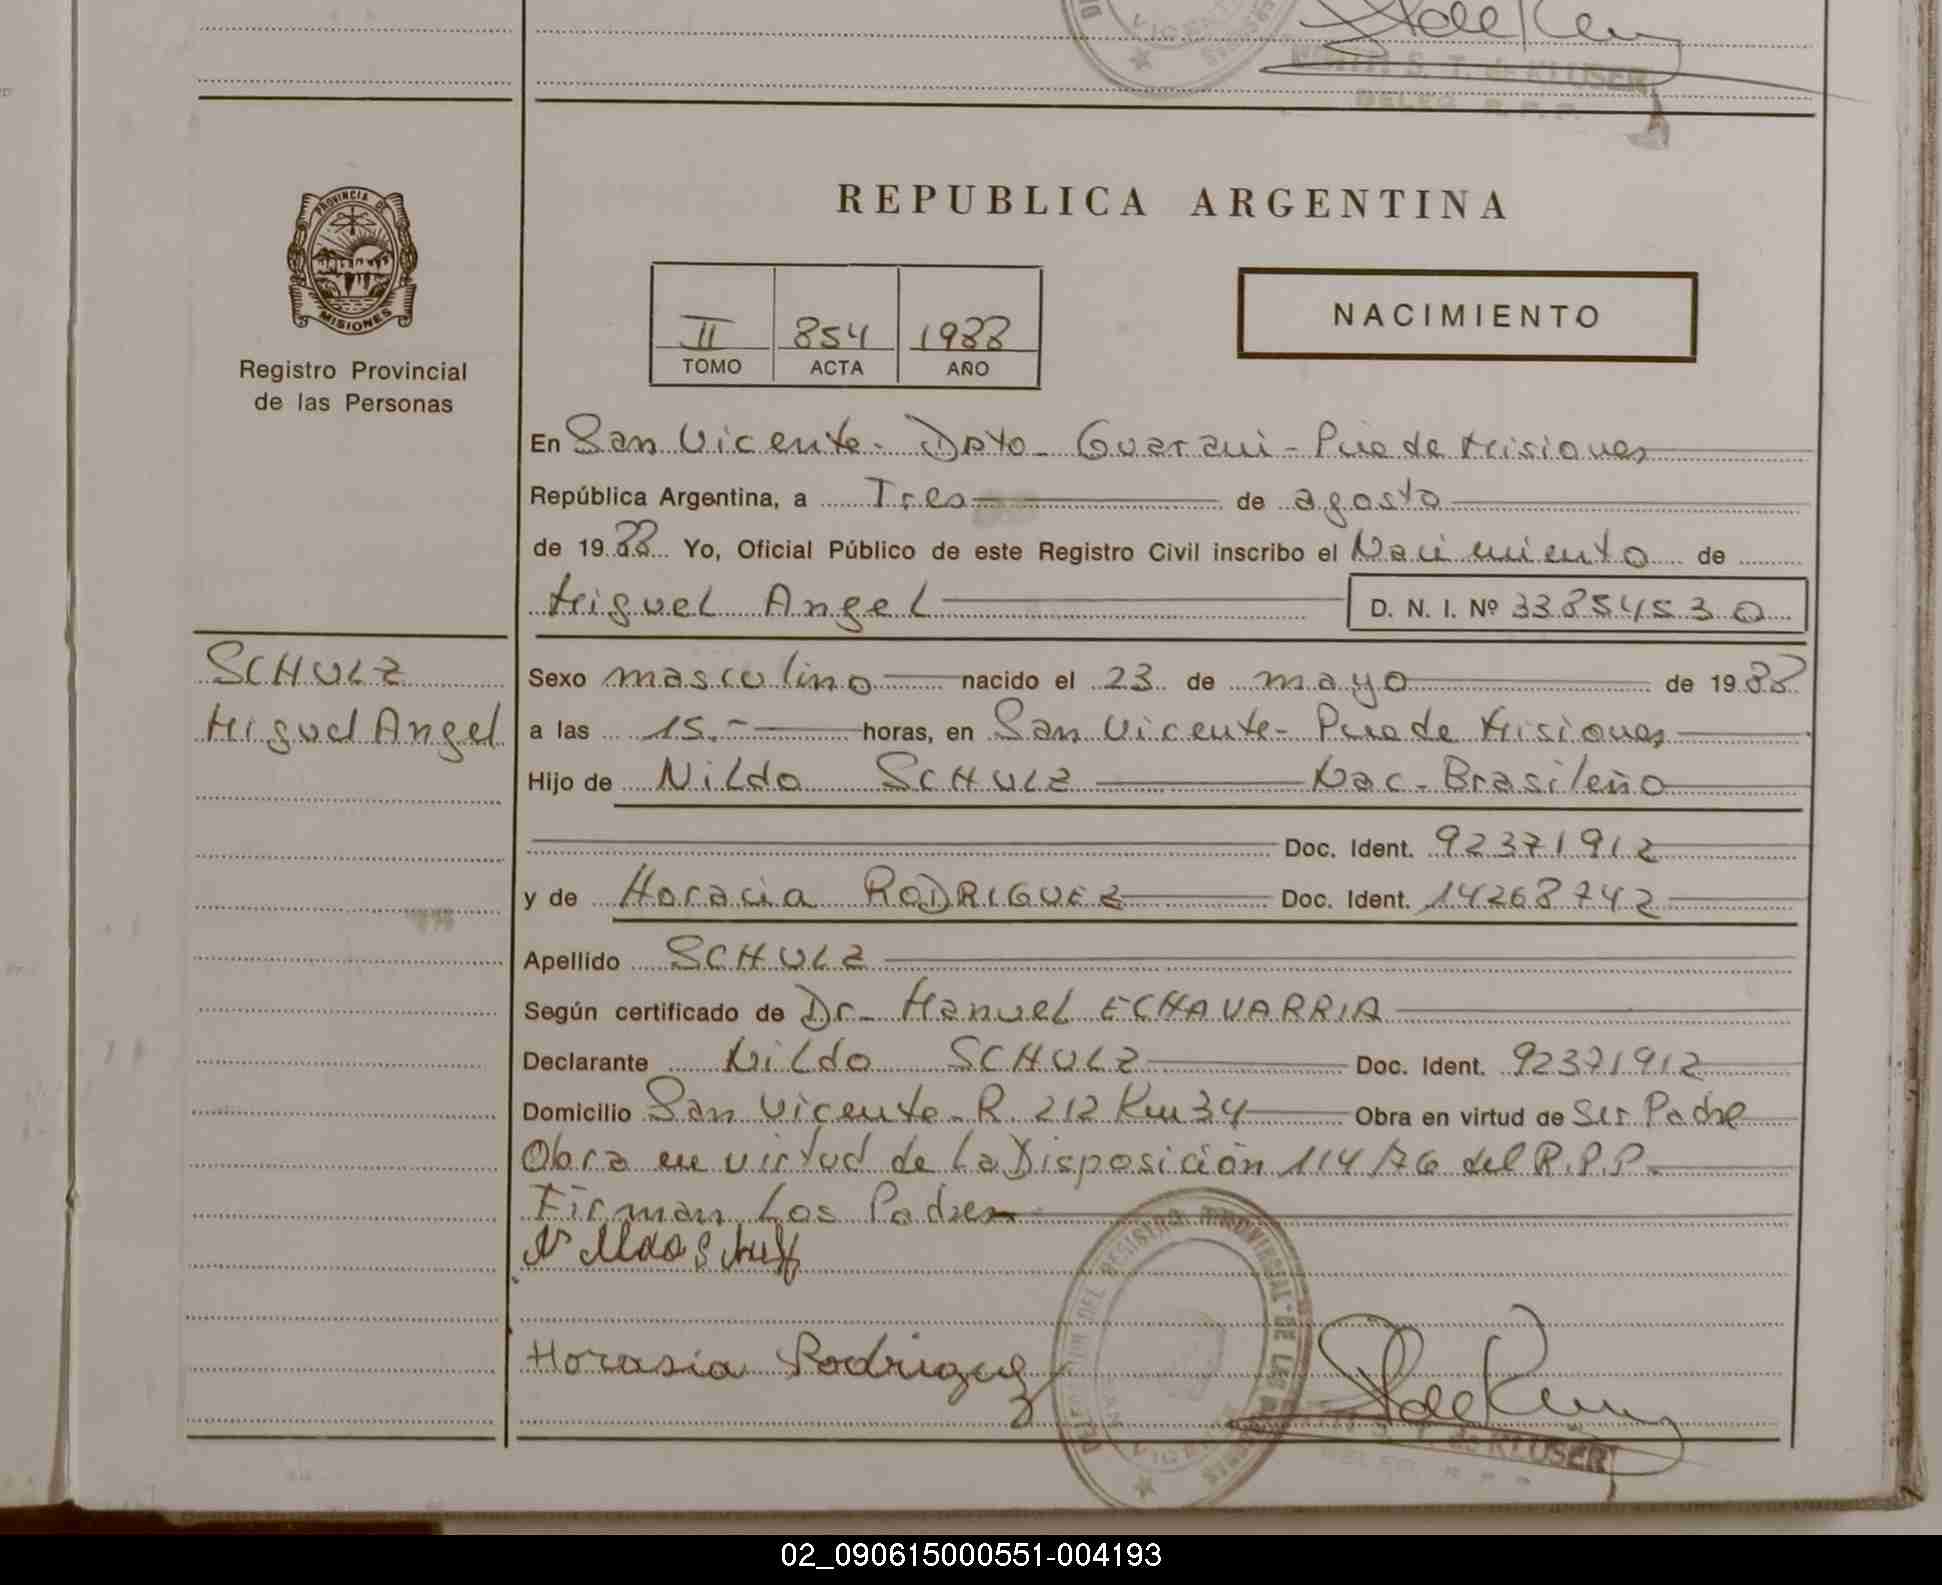 S. T. de KLUSER
DELEG. R. P. P.
PROVINCIA DE
MISIONES
Registro Provincial
de las Personas
REPUBLICA ARGENTINA
II 854 1988
TOMO ACTA AÑO
NACIMIENTO
En San Vicente- Dpto- Guarani- Pcia de Misiones
República Argentina, a Tres de agosto
de 1988 Yo, Oficial Público de este Registro Civil inscribo el Nacimiento de
Miguel Angel D. N. I. Nº 33854530
SCHULZ
Miguel Angel
Sexo masculino nacido el 23 de mayo de 1988
a las 15.- horas, en San Vicente- Pcia de Misiones
Hijo de Nildo SCHULZ Nac- Brasileño
Doc. Ident. 92371912
y de Horacia RODRIGUEZ Doc. Ident. 14268742
Apellido SCHULZ
Según certificado de Dr- Manuel ECHAVARRIA
Declarante Nildo SCHULZ Doc. Ident. 92371912
Domicilio San Vicente- R. 212 Km 34 Obra en virtud de Ser Padre
Obra en virtud de La Disposición 114/76 del R.P.P.
Firman Los Padres
Nildo Schulz
Horasia Rodriguez
DELEGACION DEL REGISTRO PROVINCIAL DE LAS
S. T. de KLUSER
DELEG. R. P. P.
02_090615000551-004193